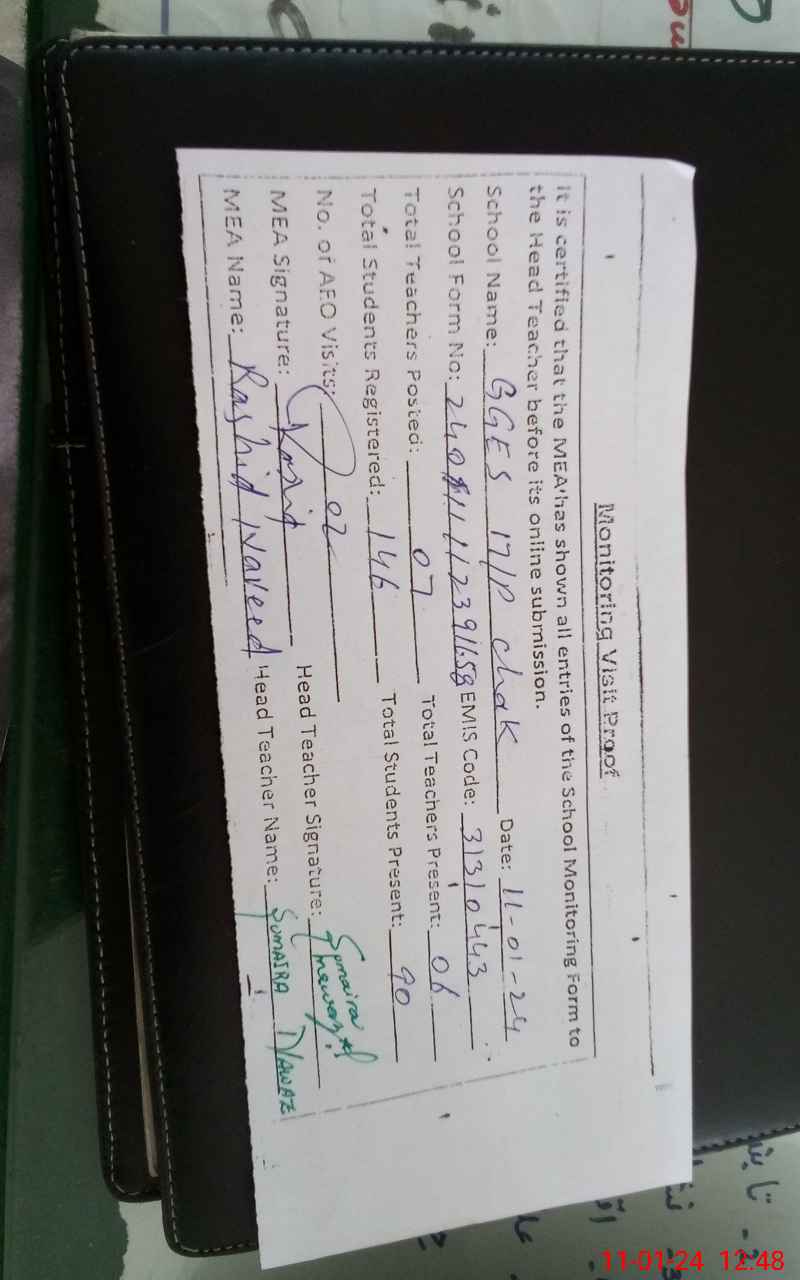 Monitoring Visit Proof
It is certified that the MEA has shown all entries of the School Monitoring Form to
the Head Teacher before its online submission.
School Name: GGES 17/P chak Date: 11-01-24
School Form No: EMIS Code: 31310443
Total Teachers Posted: 07 Total Teachers Present: 06
Total Students Registered: 146 Total Students Present: 90
No. of AEO Visits: 02
MEA Signature: Head Teacher Signature: Sumaira
MEA Name: Rashid Naveed Head Teacher Name: SUMAIRA NAWAZ
11-01-24 12.48